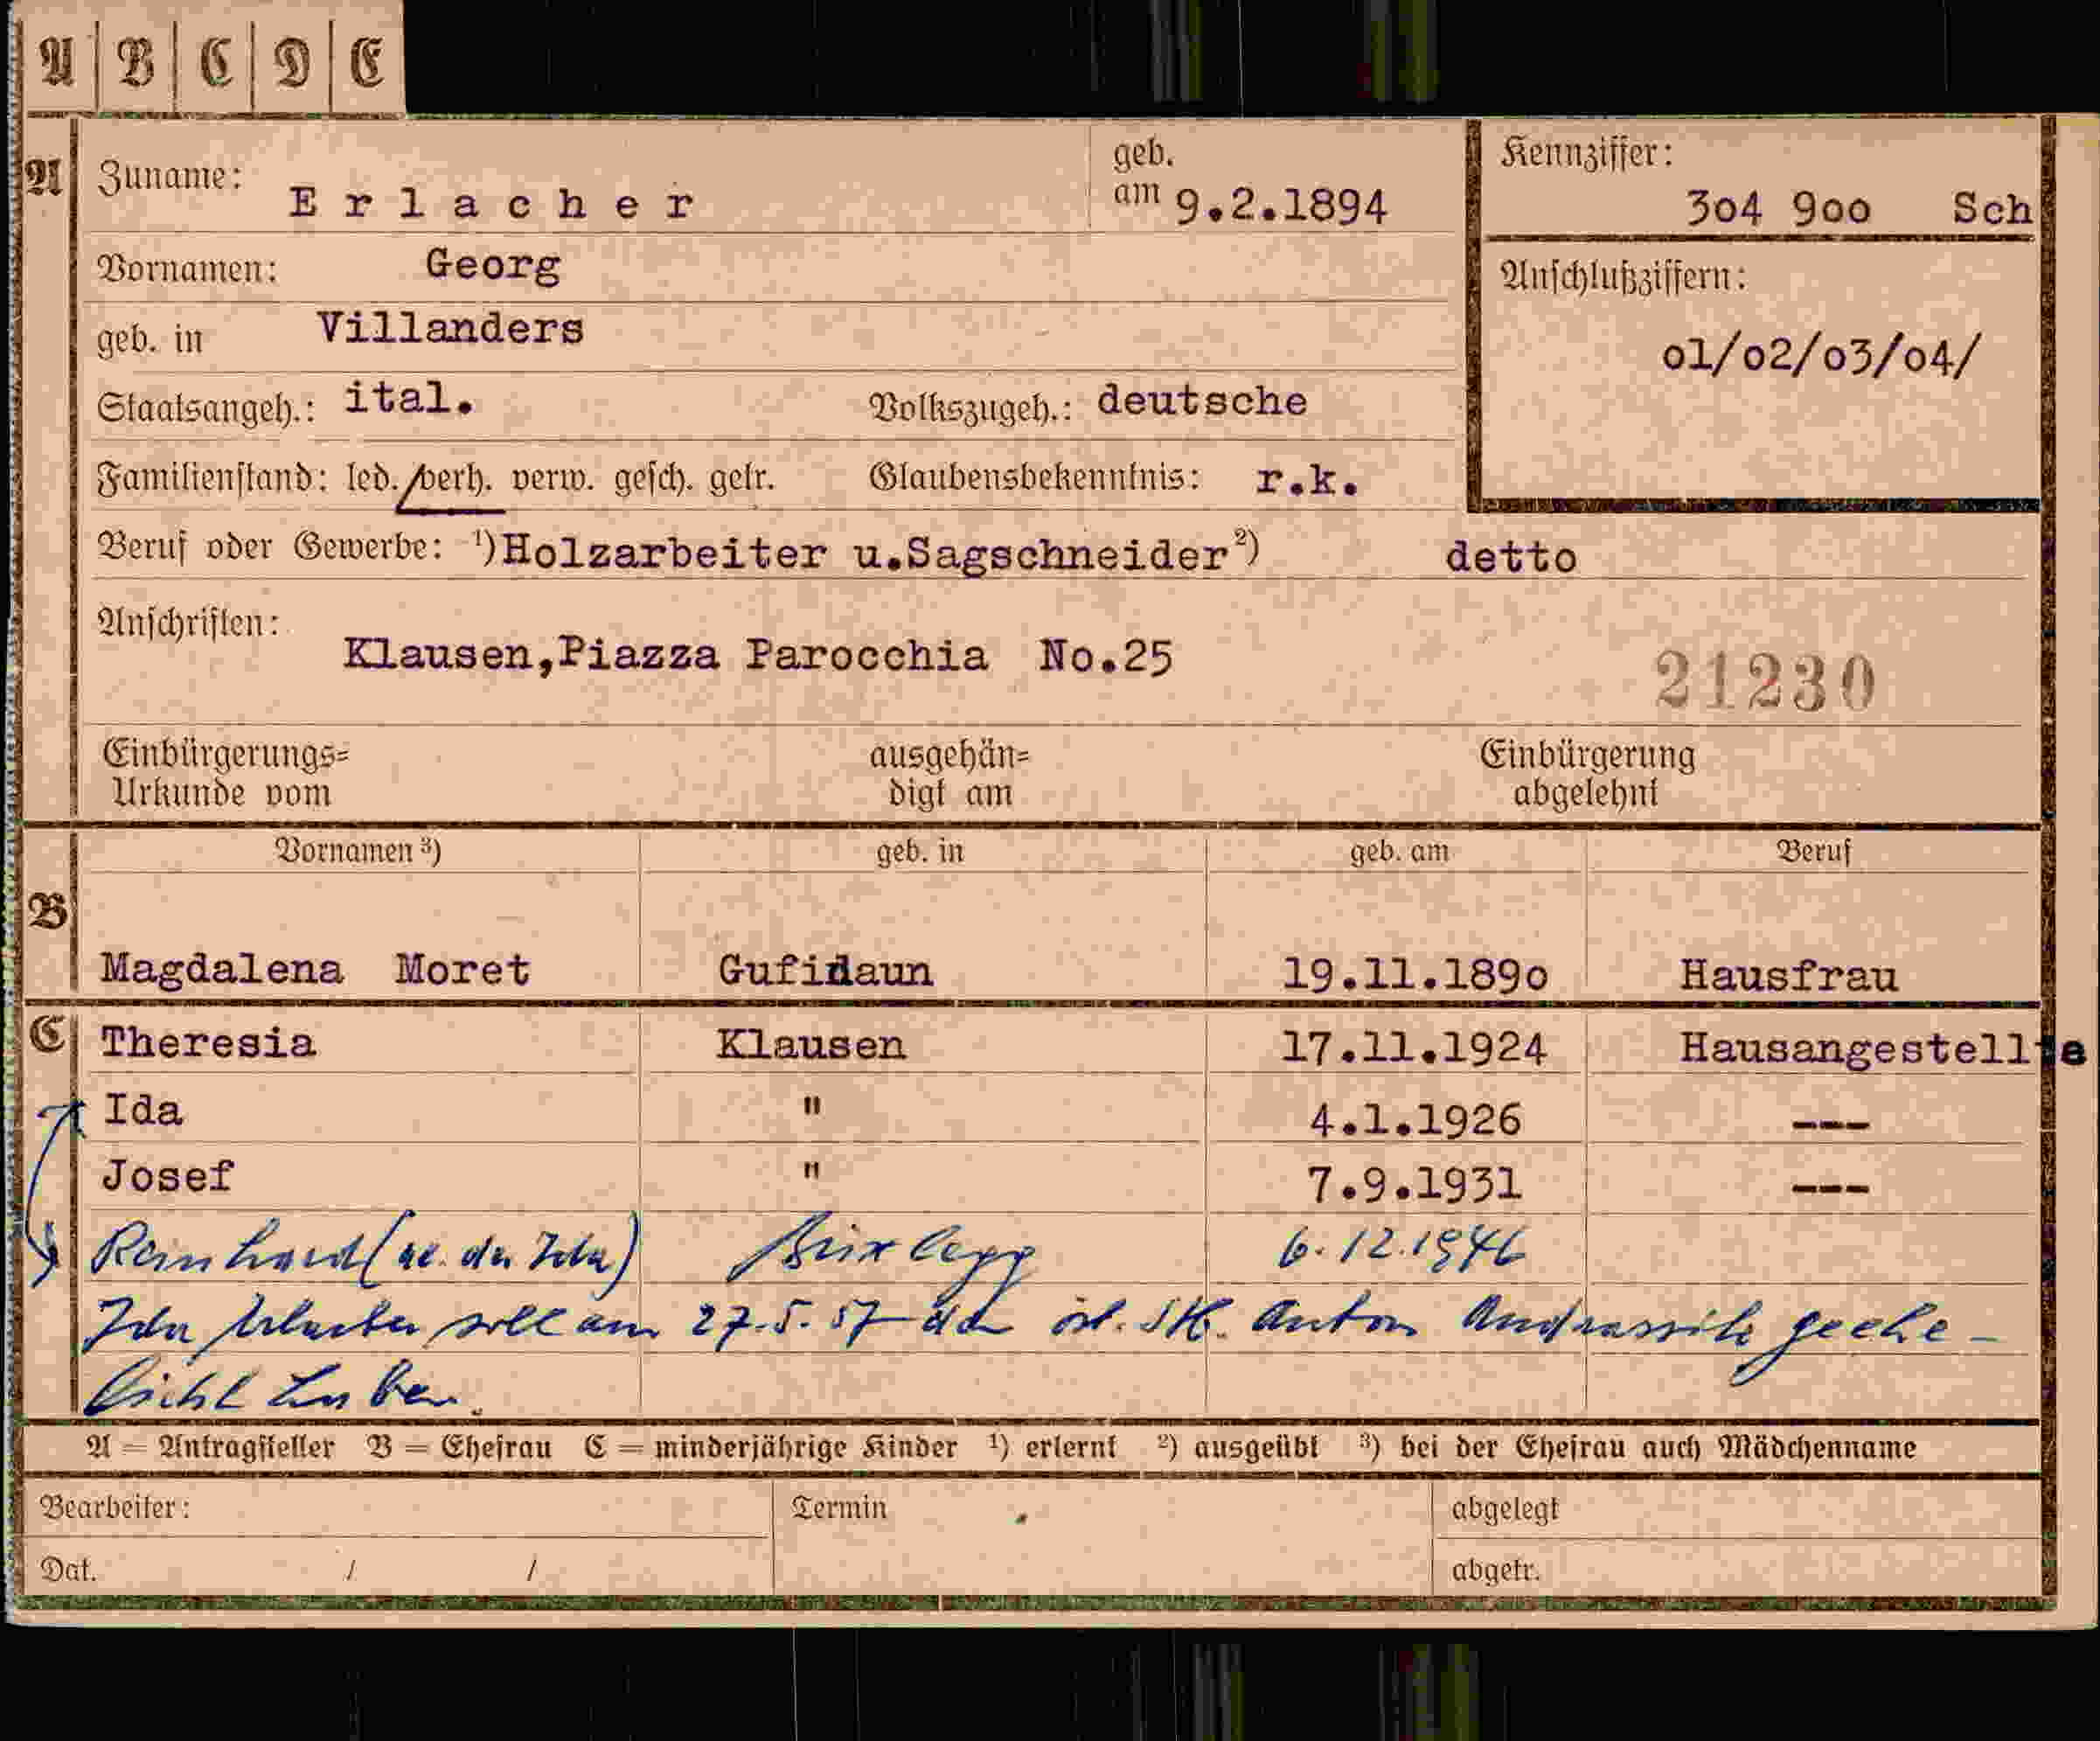 A B C D E
A Zuname: Erlacher geb. am 9.2.1894 Kennziffer: 3o4 9oo Sch
Vornamen: Georg
geb. in Villanders Anschlußziffern: o1/o2/o3/o4/
Staatsangeh.: ital. Volkszugeh.: deutsche
Familienstand: led./verh. verw. gesch. getr. Glaubensbekenntnis: r.k.
Beruf oder Gewerbe: ¹) Holzarbeiter u.Sagschneider ²) detto
Anschriften: Klausen,Piazza Parocchia No.25
21230
Einbürgerungs= Urkunde vom ausgehän= digt am Einbürgerung abgelehnt
Vornamen ³) geb. in geb. am Beruf
B Magdalena Moret Gufidaun 19.11.189o Hausfrau
C Theresia Klausen 17.11.1924 Hausangestellte
Ida " 4.1.1926 ---
Josef " 7.9.1931 ---
Reinhard (ae. der Ida) Brixlegg 6.12.1946
Ida Erlacher soll am 27.5.57 den öst. Anton geehe-
licht haben.
A = Antragsteller B = Ehefrau C = minderjährige Kinder ¹) erlernt ²) ausgeübt ³) bei der Ehefrau auch Mädchenname
Bearbeiter: Termin abgelegt
Dat. / / abgetr.